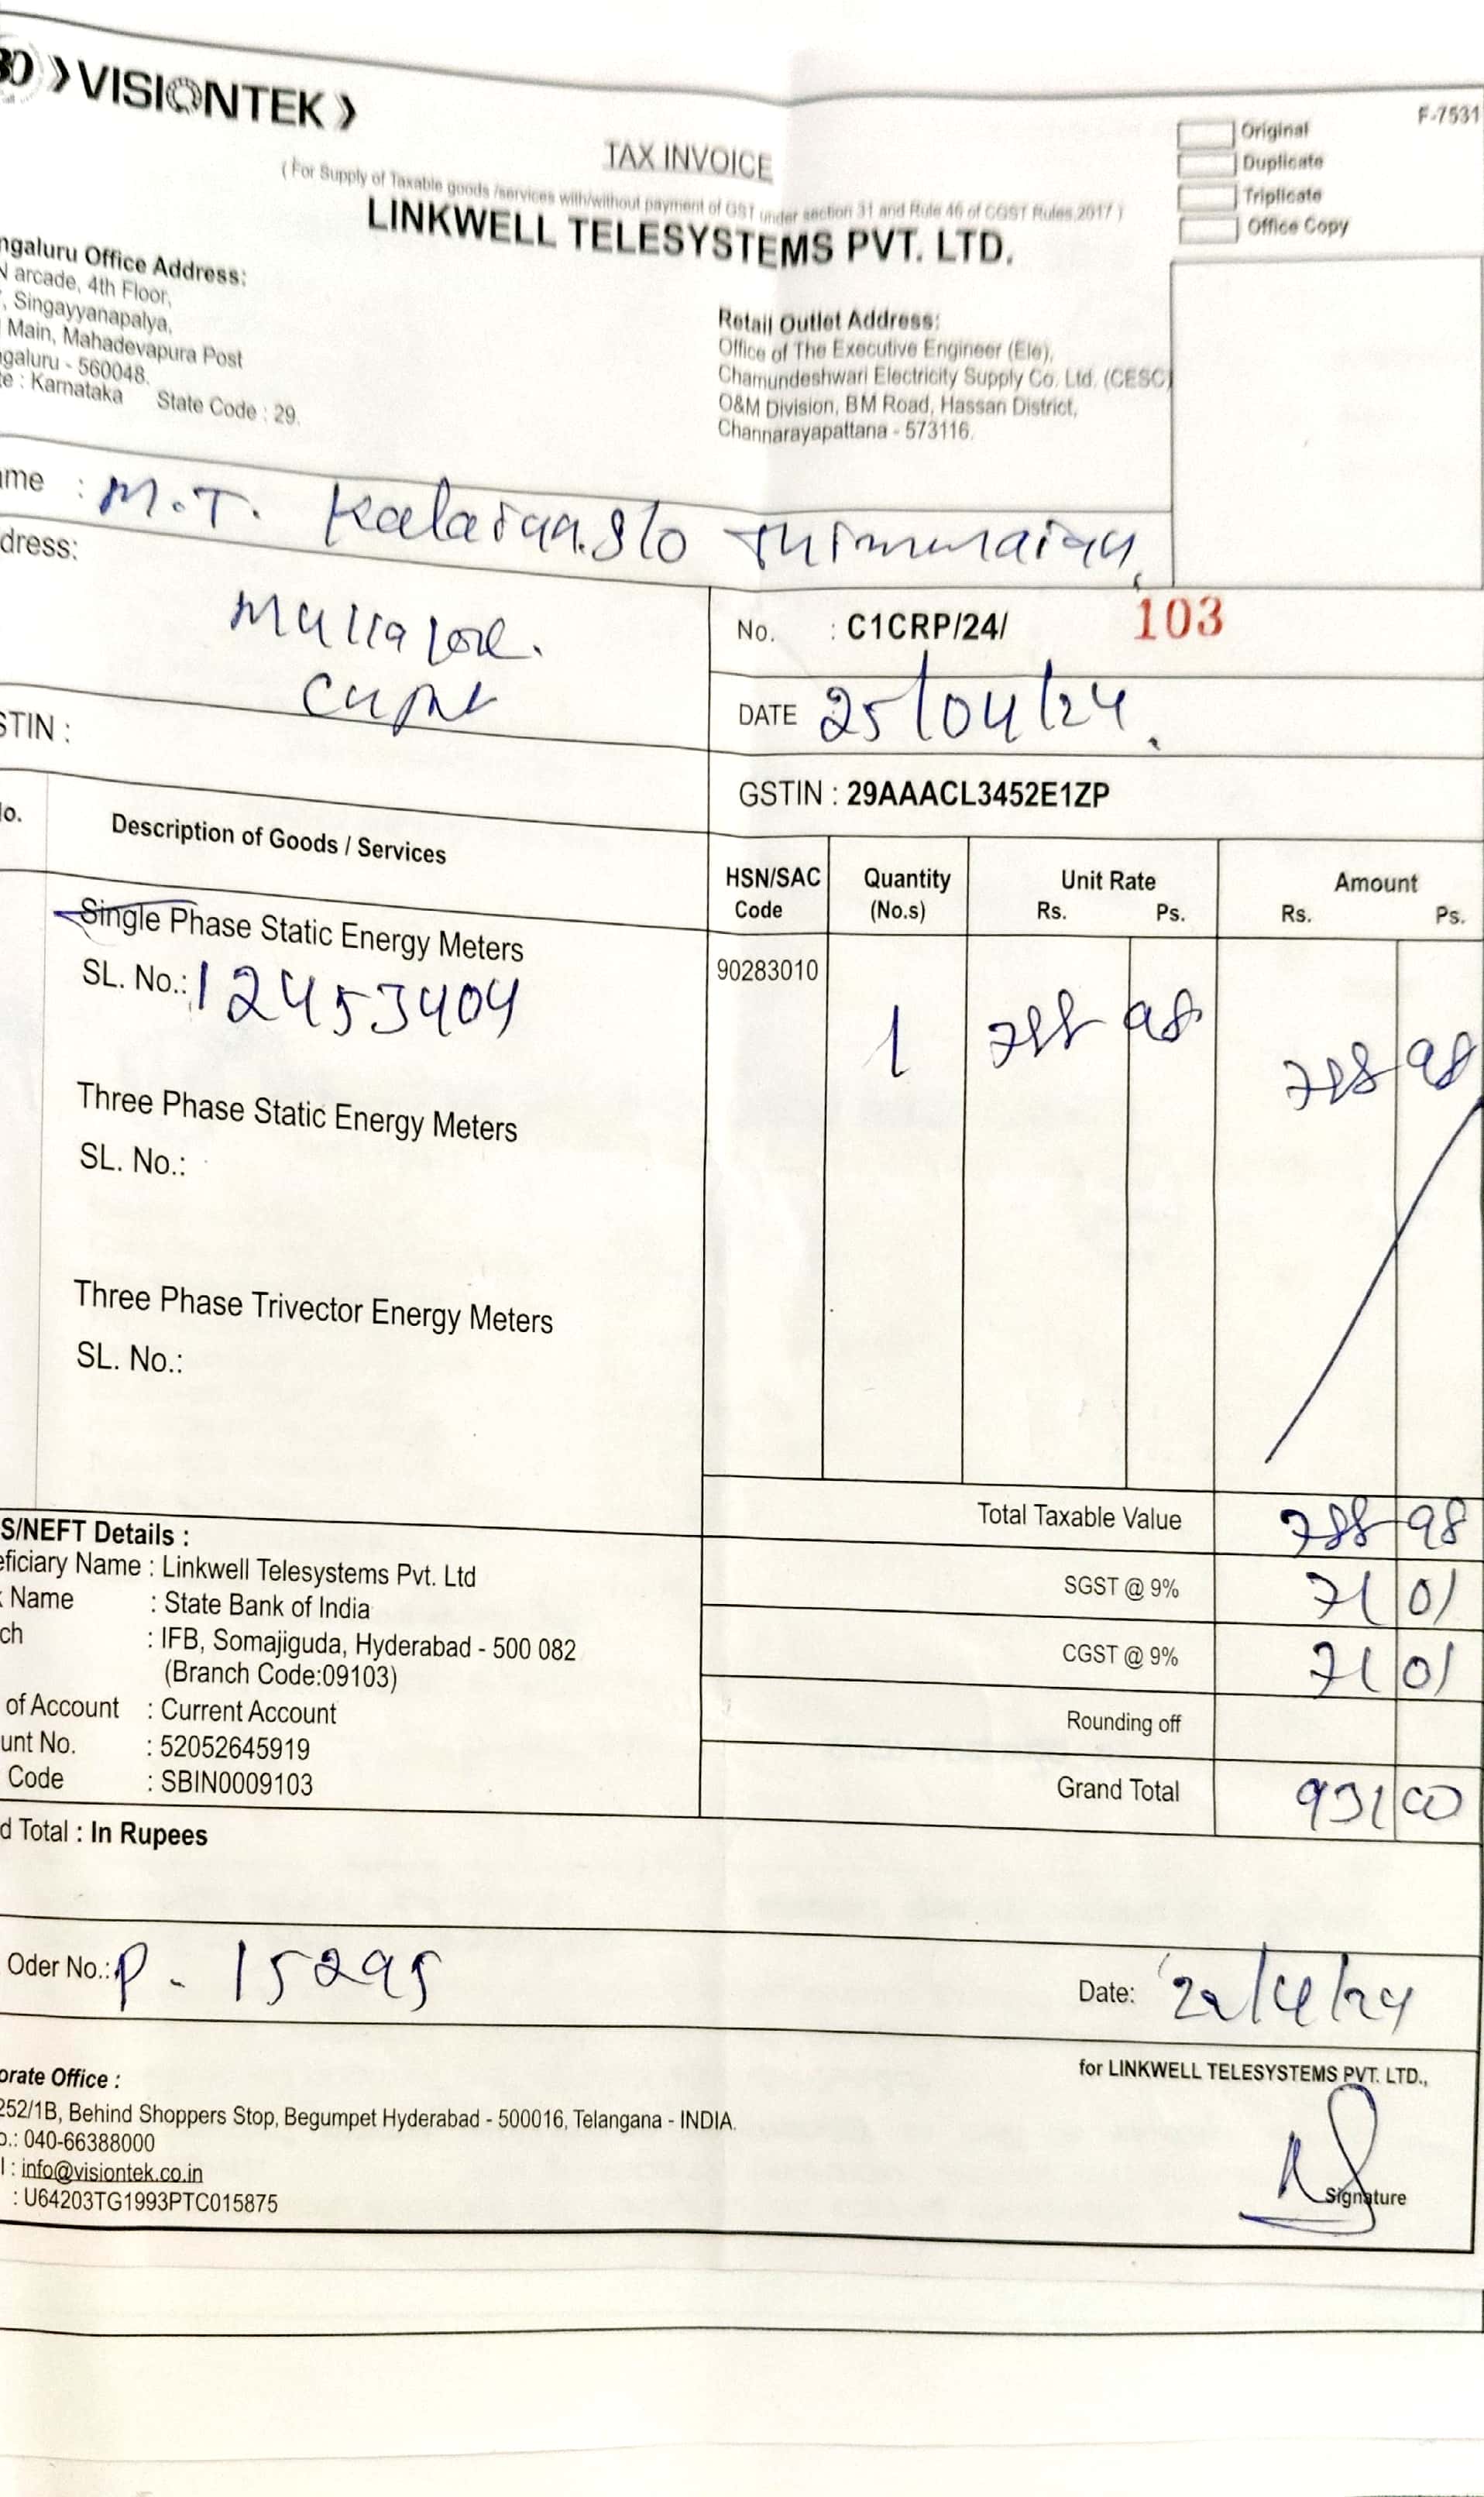 30 VISIONTEK
F-7531
Original
Duplicate
Triplicate
Office Copy
TAX INVOICE
( For Supply of Taxable goods /services with/without payment of GST under section 31 and Rule 46 of CGST Rules,2017 )
LINKWELL TELESYSTEMS PVT. LTD.
ngaluru Office Address:
N arcade, 4th Floor,
, Singayyanapalya,
Main, Mahadevapura Post
galuru - 560048.
te : Karnataka State Code : 29.
Retail Outlet Address:
Office of The Executive Engineer (Ele),
Chamundeshwari Electricity Supply Co. Ltd. (CESC)
O&M Division, BM Road, Hassan District,
Channarayapattana - 573116.
ame : M.T. Kalaiah. S/o Thimmaiah,
dress:
No. : C1CRP/24/ 103
DATE 25/04/24.
STIN :
GSTIN : 29AAACL3452E1ZP
lo. Description of Goods / Services HSN/SAC Code Quantity (No.s) Unit Rate Rs. Ps. Amount Rs. Ps.
Single Phase Static Energy Meters 90283010
SL. No.: 12453404 1 788 98 788 98
Three Phase Static Energy Meters
SL. No.:
Three Phase Trivector Energy Meters
SL. No.:
Total Taxable Value 788 98
SGST @ 9% 71 01
CGST @ 9% 71 01
Rounding off
Grand Total 931 00
S/NEFT Details :
eficiary Name : Linkwell Telesystems Pvt. Ltd
k Name : State Bank of India
ch : IFB, Somajiguda, Hyderabad - 500 082
(Branch Code:09103)
of Account : Current Account
unt No. : 52052645919
Code : SBIN0009103
d Total : In Rupees
Oder No.: P - 15295
Date: 22/4/24
for LINKWELL TELESYSTEMS PVT. LTD.,
orate Office :
252/1B, Behind Shoppers Stop, Begumpet Hyderabad - 500016, Telangana - INDIA.
o.: 040-66388000
l : info@visiontek.co.in
: U64203TG1993PTC015875
Signature